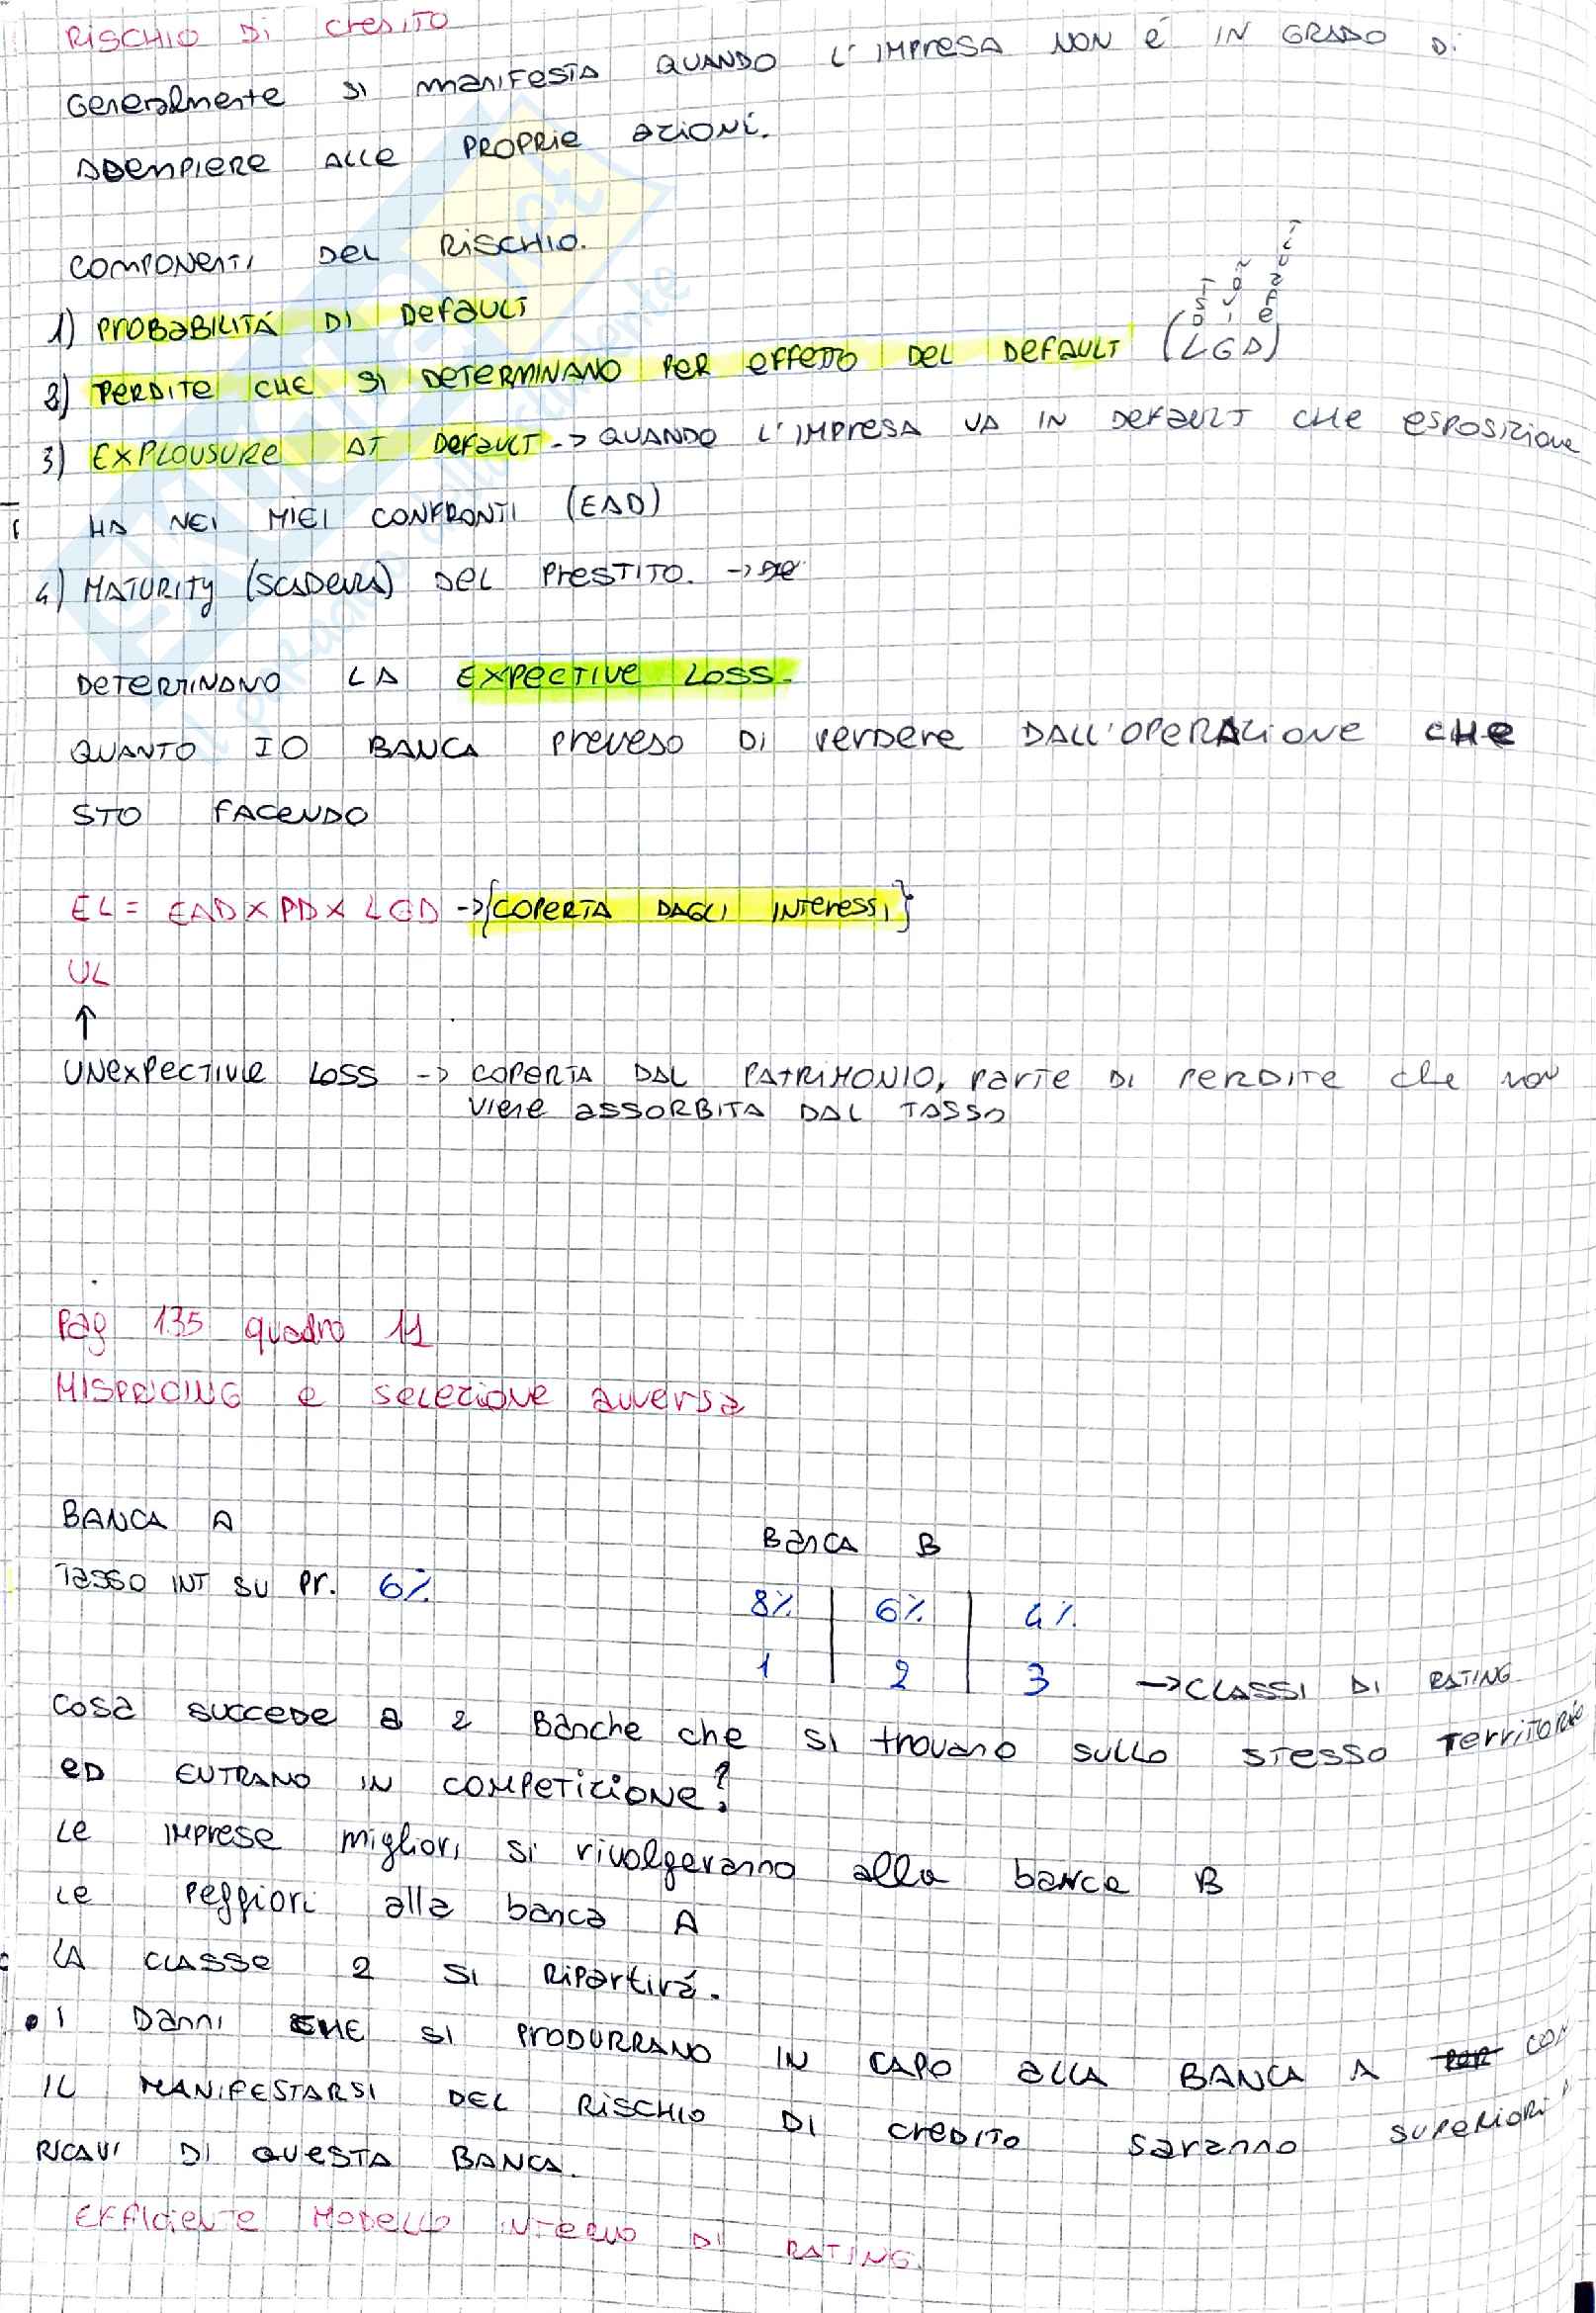 RISCHIO DI CREDITO
GENERALMENTE SI MANIFESTA QUANDO L'IMPRESA NON É IN GRADO DI
ADEMPIERE ALLE PROPRIE AZIONI.
COMPONENTI DEL RISCHIO.
1) PROBABILITÁ DI DEFAULT
2) PERDITE CHE SI DETERMINANO PER EFFETTO DEL DEFAULT (LGD)
3) EXPLOUSURE AT DEFAULT -> QUANDO L'IMPRESA VA IN DEFAULT CHE ESPOSIZIONE
HA NEI MIEI CONFRONTI (EAD)
4) MATURITY (SCADENZA) DEL PRESTITO. ->
DETERMINANO LA EXPECTIVE LOSS.
QUANTO IO BANCA PREVEDO DI PERDERE DALL'OPERAZIONE CHE
STO FACENDO
EL = EAD X PD X LGD -> {COPERTA DAGLI INTERESSI}
UL
↑
UNEXPECTIVLE LOSS -> COPERTA DAL PATRIMONIO, PARTE DI PERDITE CHE NON
VIENE ASSORBITA DAL TASSO
Pag 135 quadro 11
MISPRICING e selezione avversa
BANCA A
BANCA B
TASSO INT SU PR. 6%
8% | 6% | 4%
1 | 2 | 3 -> CLASSI DI RATING
COSA SUCCEDE A 2 BANCHE CHE SI TROVANO SULLO STESSO TERRITORIO
ED ENTRANO IN COMPETIZIONE?
LE IMPRESE MIGLIORI SI RIVOLGERANNO ALLA BANCA B
LE PEGGIORI ALLA BANCA A
LA CLASSE 2 SI RIPARTIRÁ.
• I DANNI CHE SI PRODURRANO IN CAPO ALLA BANCA A CON
IL MANIFESTARSI DEL RISCHIO DI CREDITO SARANNO SUPERIORI
RICAVI DI QUESTA BANCA.
EFFICIENTE MODELLO INTERNO DI RATING.